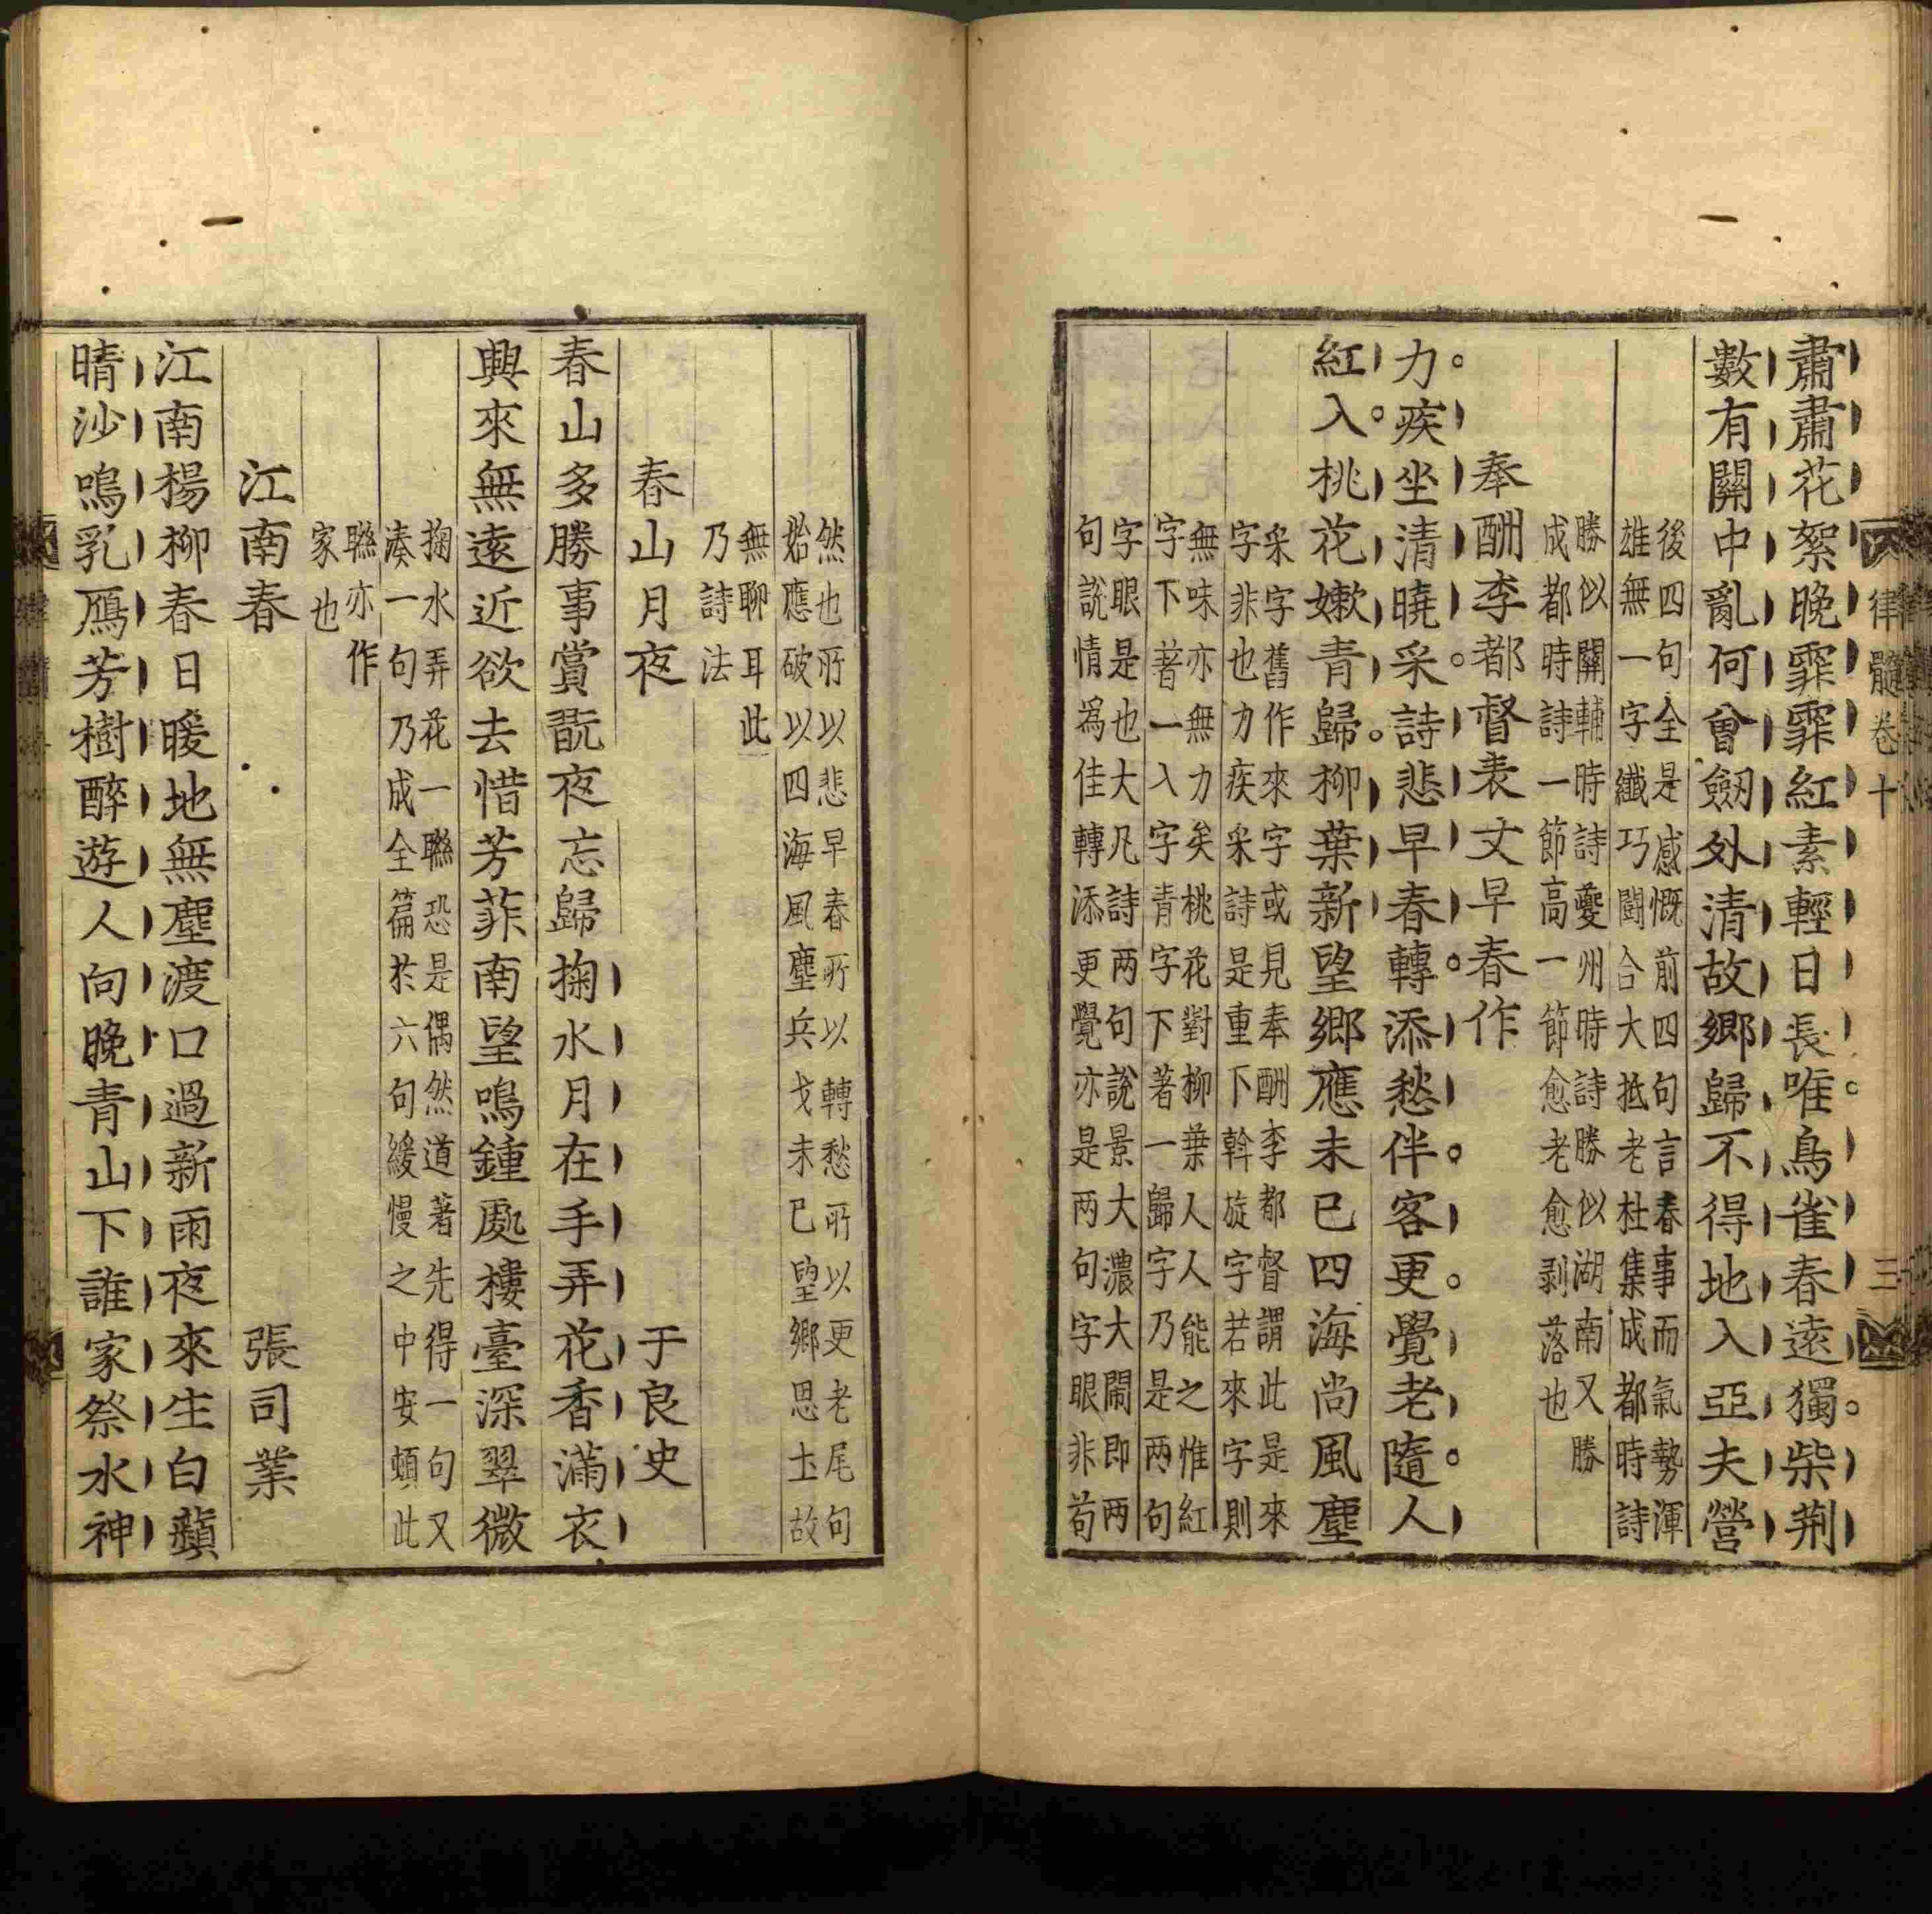 律髓卷十
三
肅肅花絮晚霏霏紅素輕日長唯鳥雀春遠獨柴荆
數有關中亂何曾劔外清故鄉歸不得地入亞夫營
後四句全是感慨前四句言春事而氣勢渾
雄無一字纖巧鬬合大抵老杜集成都時詩
勝似關輔時詩夔州時詩勝似湖南又勝
成都時詩一節高一節愈老愈剥落也
奉酬李都督表丈早春作
力疾坐清曉采詩悲早春轉添愁伴客更覺老隨人
紅入桃花嫰青歸柳葉新望鄉應未已四海尚風塵
采字舊作來字或見奉酬李都督謂此是來
字非也力疾采詩是重下斡旋字若來字則
無味亦無力矣桃花對柳葉人人能之惟紅
字下著一入字青字下著一歸字乃是两句
字眼是也大凡詩两句說景大濃大閙即两
句說情爲佳轉添更覺亦是两句字眼非苟
然也所以悲早春所以轉愁所以更老尾句
始應破以四海風塵兵戈未已望鄉思土故
無聊耳此
乃詩法
春山月夜
于良史
春山多勝事賞翫夜忘歸掬水月在手弄花香滿衣
興來無遠近欲去惜芳菲南望鳴鍾處樓臺深翠微
掬水弄花一聯恐是偶然道著先得一句又
湊一句乃成全篇於六句緩慢之中安頓此
聯亦作
家也
江南春
張司業
江南楊柳春日暖地無塵渡口過新雨夜來生白蘋
晴沙鳴乳鴈芳樹醉遊人向晚青山下誰家祭水神